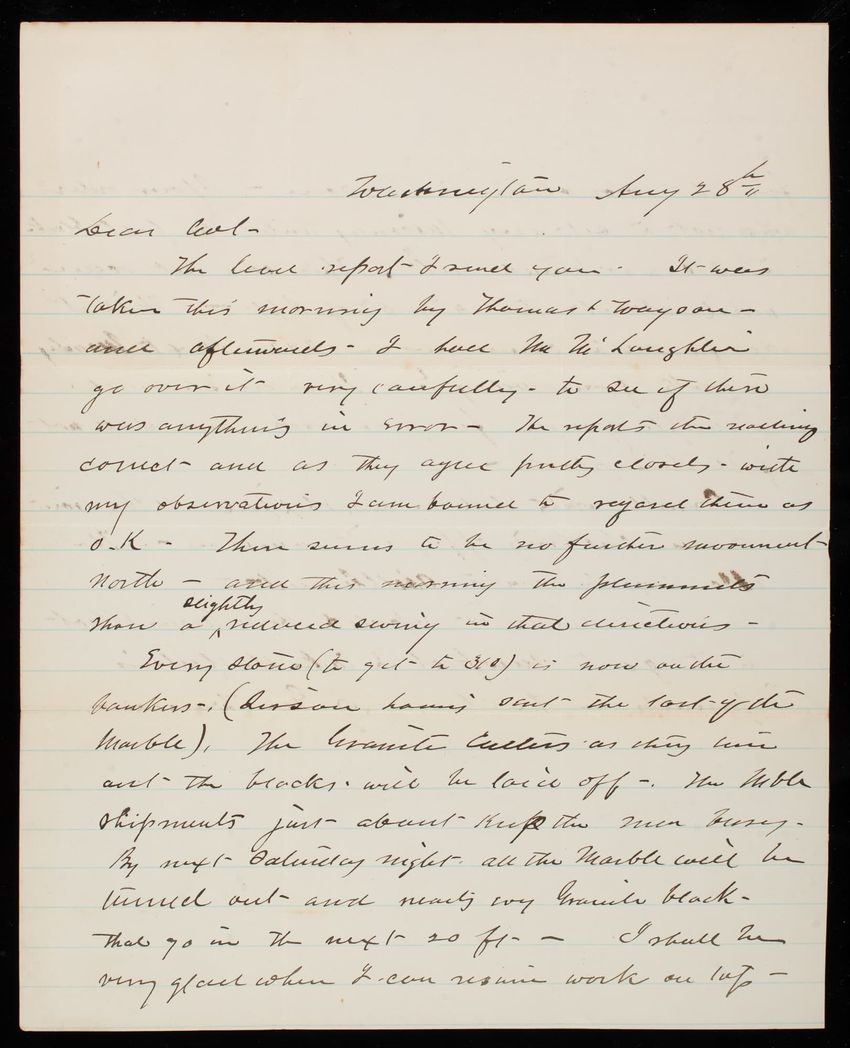 Washington Aug 28th
Dear Col -
The level report I send you. It was
taken this morning by Thomas & Wayson -
and afterwards - I had Mr McLaughlin
go over it very carefully - to see if there
was anything in error - He reports the readings
correct - and as they agree pretty closely - with
my observations I am bound to regard them as
O.K - There seems to be no further movement
north - and this morning the plummets
slightly
show a ‸ reduced swing in that direction -
Every stone (to get to 310) is now on the
bankers -. ( having sent the last of the
Marble). The Granite Cutters as they turn
out the blocks - will be laid off -. The Mble
shipments just about keep the men busy -
By next Saturday night all the Marble will be
turned out - and nearly evy Granite block -
that go in the next 20 ft - - I shall be
very glad when I can resume work on top -